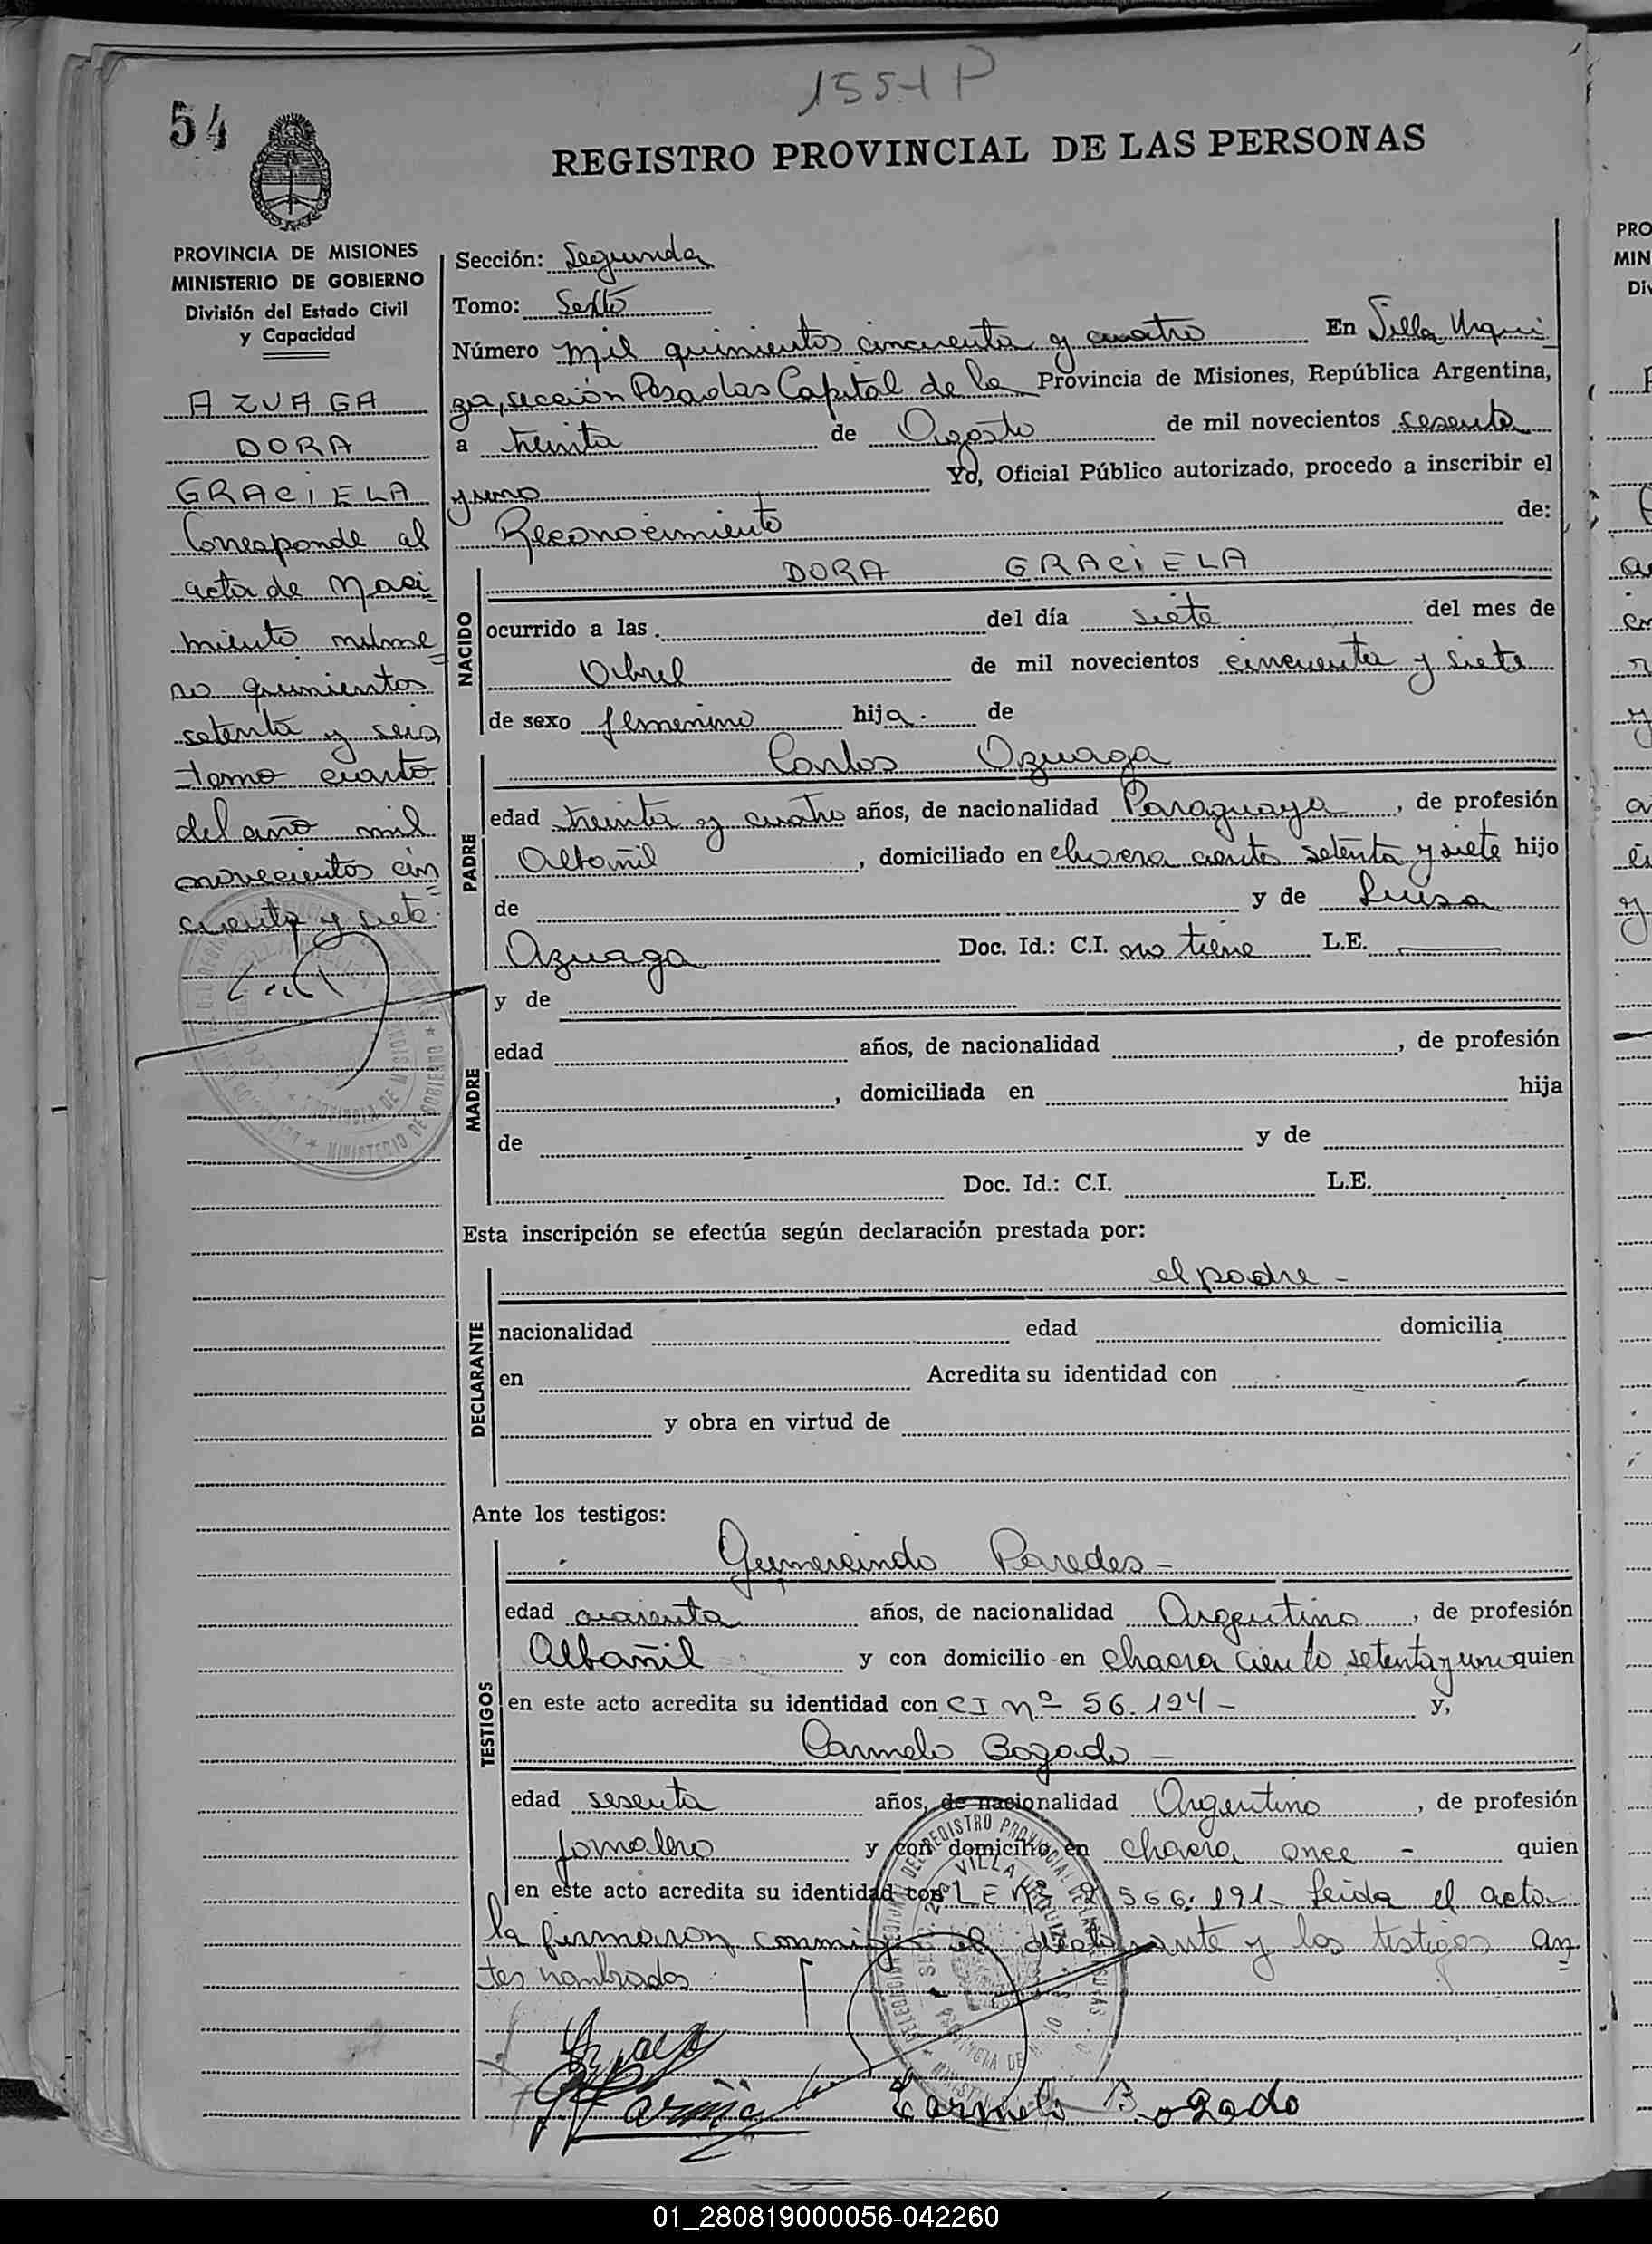 1554 P
54
REGISTRO PROVINCIAL DE LAS PERSONAS
PROVINCIA DE MISIONES
MINISTERIO DE GOBIERNO
División del Estado Civil
y Capacidad
AZUAGA
DORA
GRACIELA
Corresponde al
acta de Naci
miento núme
ro quinientos
setenta y seis
tomo cuarto
del año mil
novecientos cin
cuenta y siete.
Sección: Segunda
Tomo: Sexto
Número mil quinientos cincuenta y cuatro En Villa Urqui
za, sección Posadas Capital de la Provincia de Misiones, República Argentina,
a treinta de Agosto de mil novecientos sesenta
y uno Yo, Oficial Público autorizado, procedo a inscribir el
Reconocimiento de:
NACIDO
DORA GRACIELA
ocurrido a las del día siete del mes de
Abril de mil novecientos cincuenta y siete
de sexo femenino hija. de
PADRE
Carlos Azuaga
edad treinta y cuatro años, de nacionalidad Paraguaya, de profesión
Albañil, domiciliado en chacra ciento setenta y siete hijo
de y de Luisa
Azuaga Doc. Id.: C.I. no tiene L.E.
MADRE
y de
edad años, de nacionalidad , de profesión
, domiciliada en hija
de y de
Doc. Id.: C.I. L.E.
Esta inscripción se efectúa según declaración prestada por:
DECLARANTE
el padre -
nacionalidad edad domicilia
en Acredita su identidad con
y obra en virtud de
Ante los testigos:
TESTIGOS
Gumercindo Paredes -
edad cuarenta años, de nacionalidad Argentino, de profesión
Albañil y con domicilio en chacra ciento setenta y uno quien
en este acto acredita su identidad con CI nº 56.124 - y,
Carmelo Bogado -
edad sesenta años, de nacionalidad Argentino, de profesión
Jornalero y con domicilio en chacra once - quien
en este acto acredita su identidad con LE nº 566.191- leida el acta
la firmaron conmigo el declarante y los testigos an
tes nombrados.
Carmelo Bogado
01_280819000056-042260